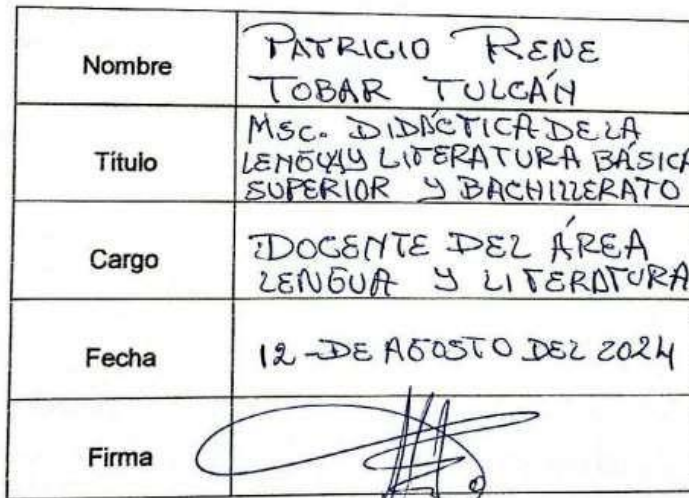 Nombre
PATRICIO RENE
TOBAR TULCÁN
Título
MSC. DIDÁCTICA DE LA
LENGUA Y LITERATURA BÁSICA
SUPERIOR Y BACHILLERATO
Cargo
DOCENTE DEL ÁREA
LENGUA Y LITERATURA
Fecha
12-DE AGOSTO DEL 2024
Firma